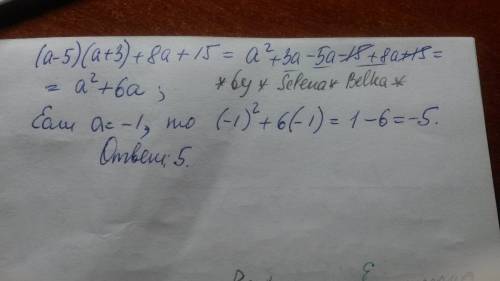 (a-5)(a+3)+8a+15 = a²+3a-5a-15+8a+15=
= a²+6a; *by * Selena* Belka*
Если a=-1, то (-1)²+6(-1)=1-6=-5.
Ответ: 5.